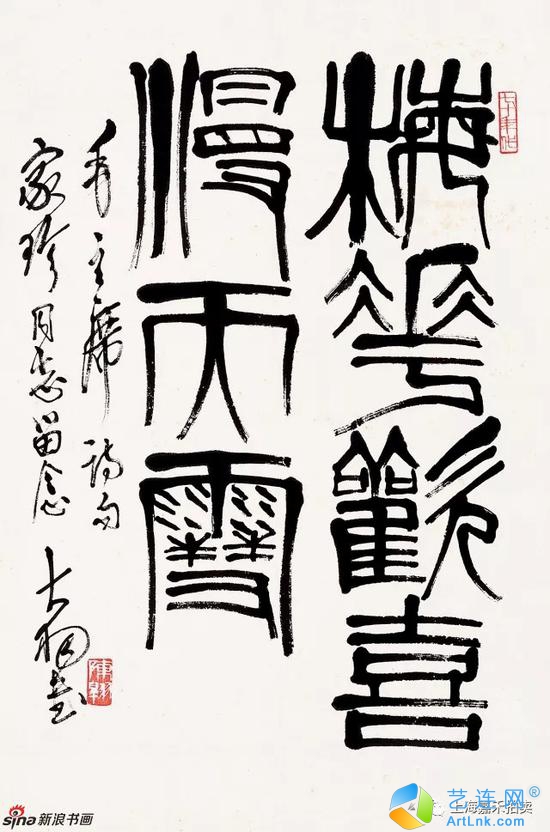 梅花歡喜
漫天雪
毛主席詩句
家珍同志留念
大羽書
sina 新浪书画
上海嘉禾拍卖
艺连网®
ArtLnk.com